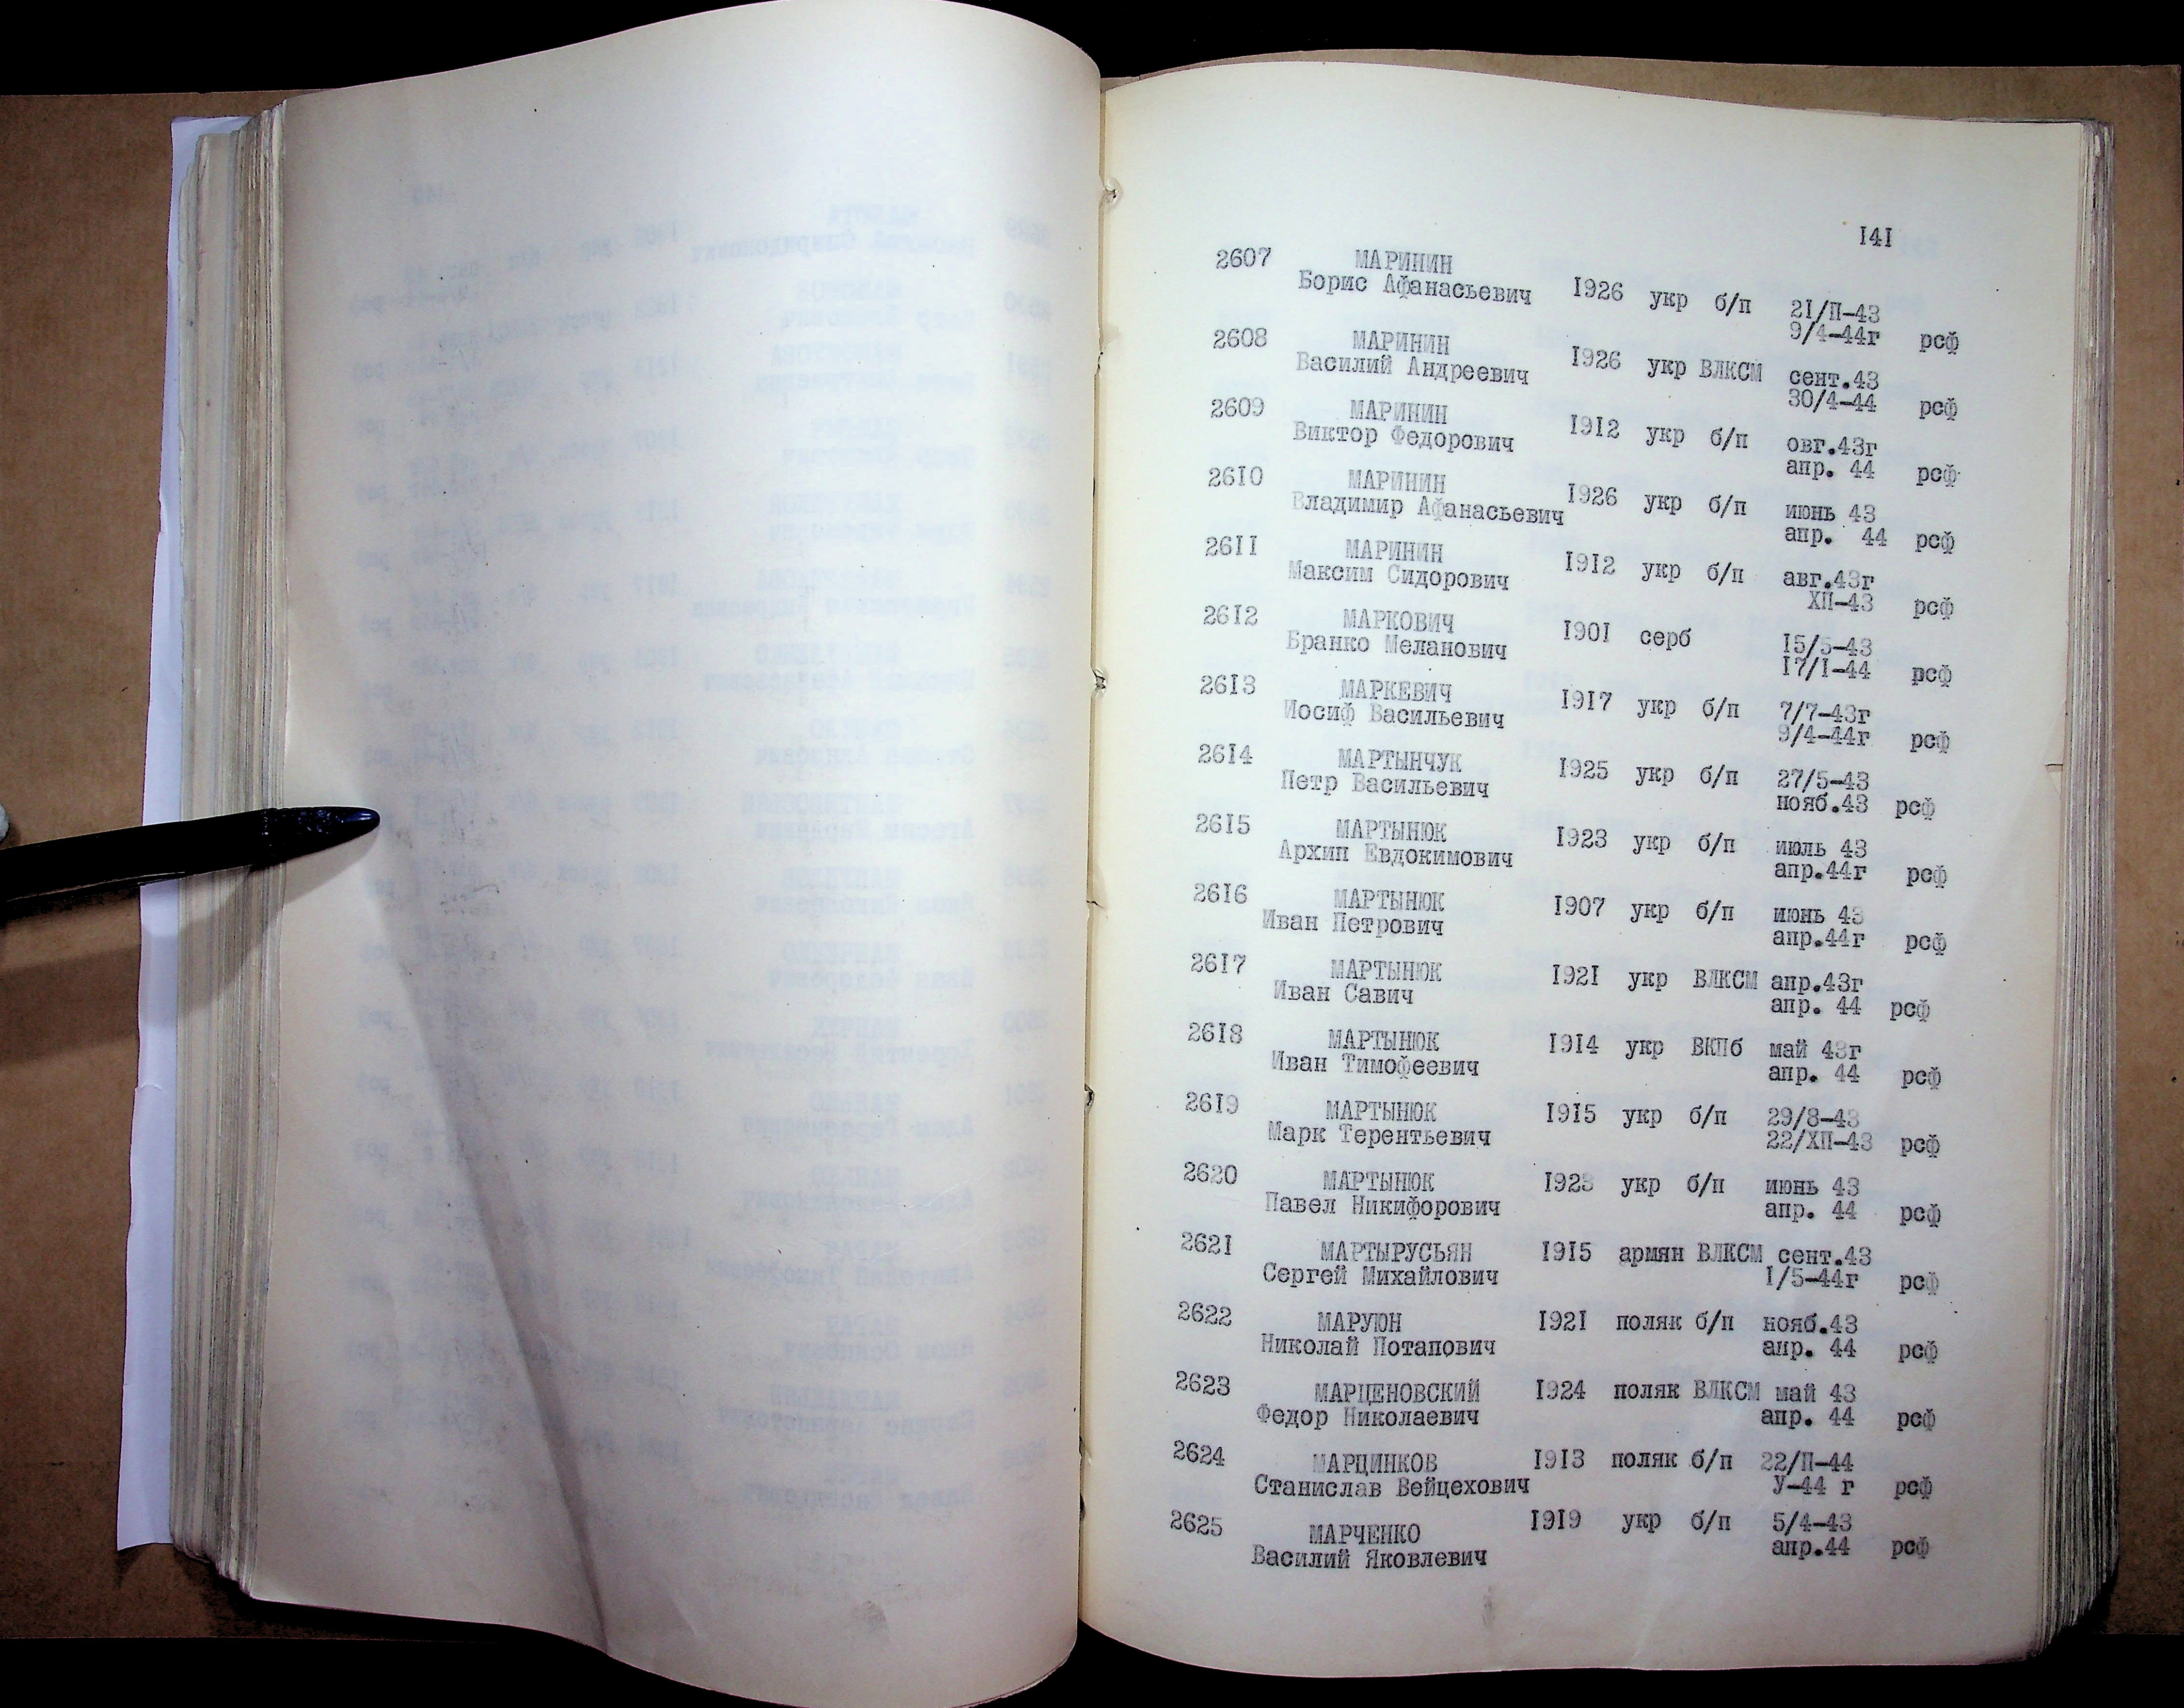 141
2607 МАРИНИН
Борис Афанасьевич 1926 укр б/п 21/П-43
9/4-44г рсф
2608 МАРИНИН
Василий Андреевич 1926 укр ВЛКСМ сент.43
30/4-44 рсф
2609 МАРИНИН
Виктор Федорович 1912 укр б/п овг.43г
апр. 44 рсф
2610 МАРИНИН
Владимир Афанасьевич 1926 укр б/п июнь 43
апр. 44 рсф
2611 МАРИНИН
Максим Сидорович 1912 укр б/п авг.43г
ХП-43 рсф
2612 МАРКОВИЧ
Бранко Меланович 1901 серб 15/5-43
17/1-44 рсф
2613 МАРКЕВИЧ
Иосиф Васильевич 1917 укр б/п 7/7-43г
9/4-44г рсф
2614 МАРТЫНЧУК
Петр Васильевич 1925 укр б/п 27/5-43
нояб.43 рсф
2615 МАРТЫНЮК
Архип Евдокимович 1923 укр б/п июль 43
апр.44г рсф
2616 МАРТЫНЮК
Иван Петрович 1907 укр б/п июнь 43
апр.44г рсф
2617 МАРТЫНЮК
Иван Савич 1921 укр ВЛКСМ апр.43г
апр. 44 рсф
2618 МАРТЫНЮК
Иван Тимофеевич 1914 укр ВКПб май 43г
апр. 44 рсф
2619 МАРТЫНЮК
Марк Терентьевич 1915 укр б/п 29/8-43
22/ХП-43 рсф
2620 МАРТЫНЮК
Павел Никифорович 1923 укр б/п июнь 43
апр. 44 рсф
2621 МАРТЫРУСЬЯН
Сергей Михайлович 1915 армян ВЛКСМ сент.43
1/5-44г рсф
2622 МАРУЮН
Николай Потапович 1921 поляк б/п нояб.43
апр. 44 рсф
2623 МАРЦЕНОВСКИЙ
Федор Николаевич 1924 поляк ВЛКСМ май 43
апр. 44 рсф
2624 МАРЦИНКОВ
Станислав Вейцехович 1913 поляк б/п 22/П-44
У-44 г рсф
2625 МАРЧЕНКО
Василий Яковлевич 1919 укр б/п 5/4-43
апр.44 рсф